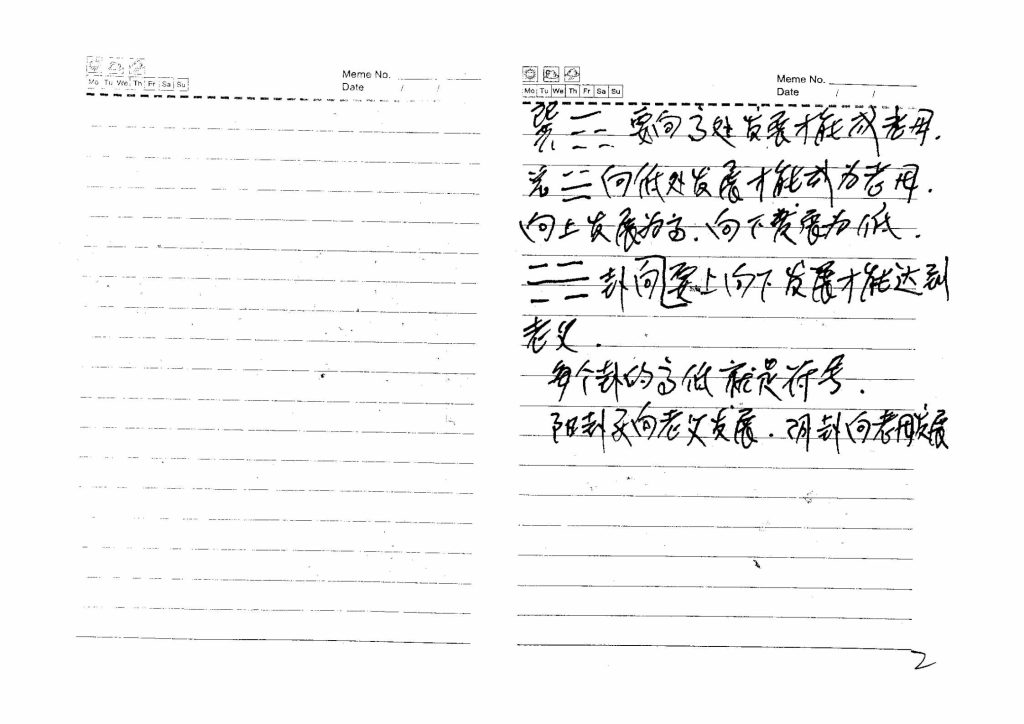 Mo Tu We Th Fr Sa Su
Meme No.
Date / /
Mo Tu We Th Fr Sa Su
Meme No.
Date / /
巽 要向高处发展才能成老母.
兑 向低处发展才能成为老母.
向上发展为高.向下发展为低.
卦向要上向下发展才能达到
老父.
每个卦的高低就是符号.
阳卦向老父发展.阴卦向老母发展
2